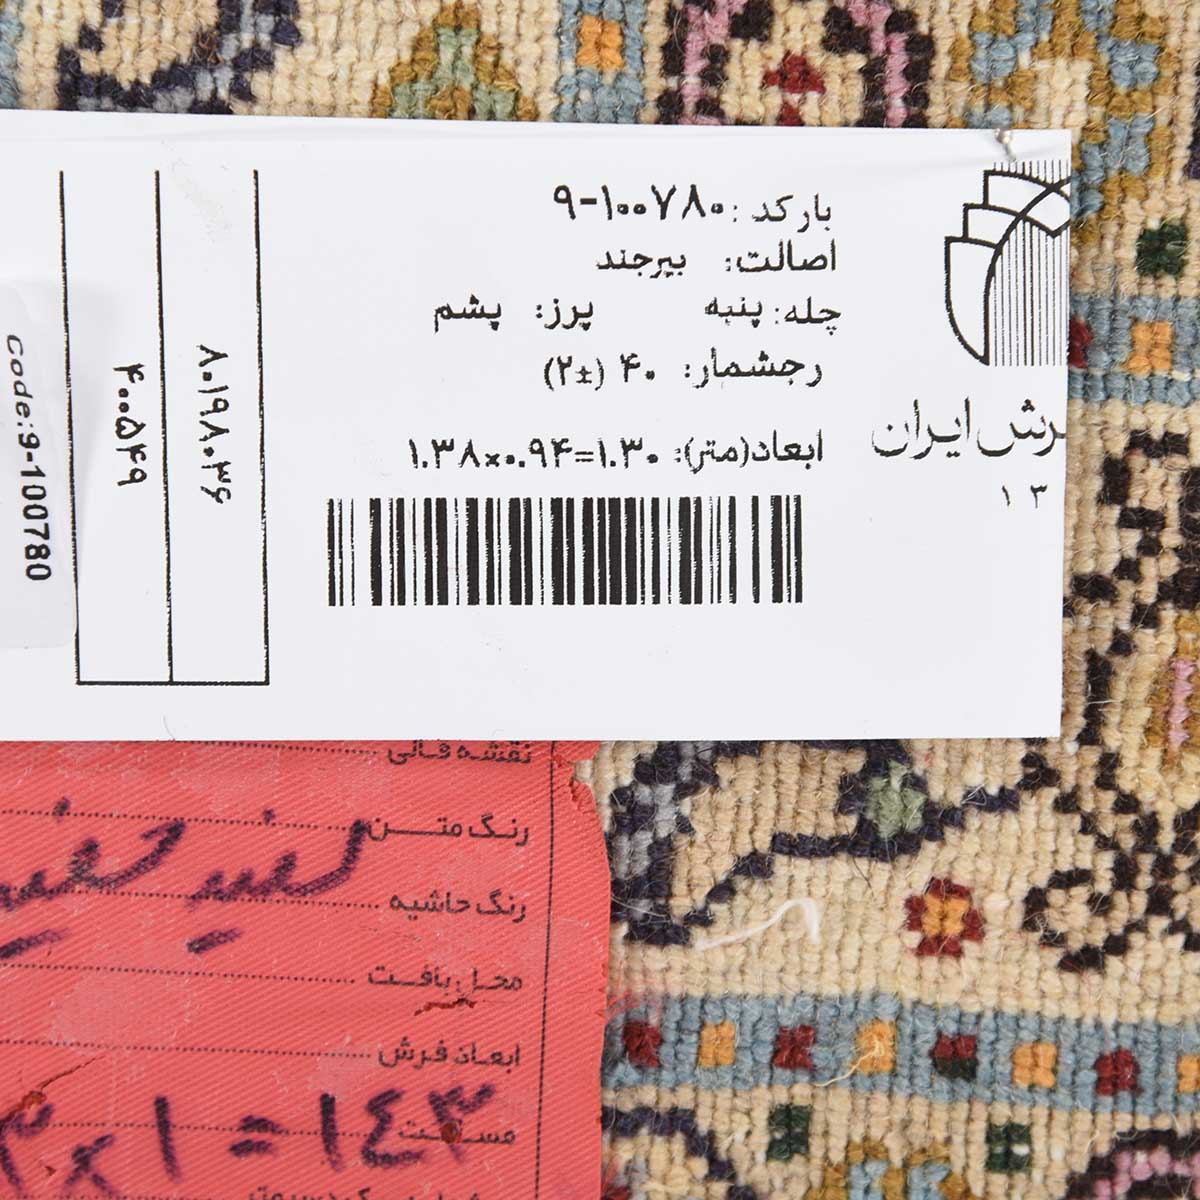 بارکد: ۹-۱۰۰۷۸۰
اصالت: بیرجند
چله: پنبه پرز: پشم
رجشمار: ۴۰ (±۲)
ابعاد(متر): ۱.۳۸×۰.۹۴=۱.۳۰
رش ایران
۱۳
۸۰۱۹۸۰۳۶
۴۰۰۵۴۹
Code:9-100780
نقشه قالی
رنگ متن
رنگ حاشیه
محل بافت
ابعاد فرش
مساحت
×۱=۱۴۳